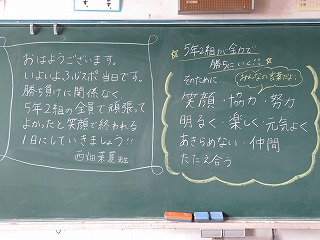 おはようございます。
いよいよふれスポ当日です。
勝ち負けに関係なく
5年2組の全員で頑張って
よかったと笑顔で終われる
1日にしていきましょう!!
西畑菜夏
5年2組が全力で
勝ちにいく!!
そのために
みんなの言葉だよ
笑顔・協力・努力
明るく・楽しく・元気よく
あきらめない・仲間
たたえ合う